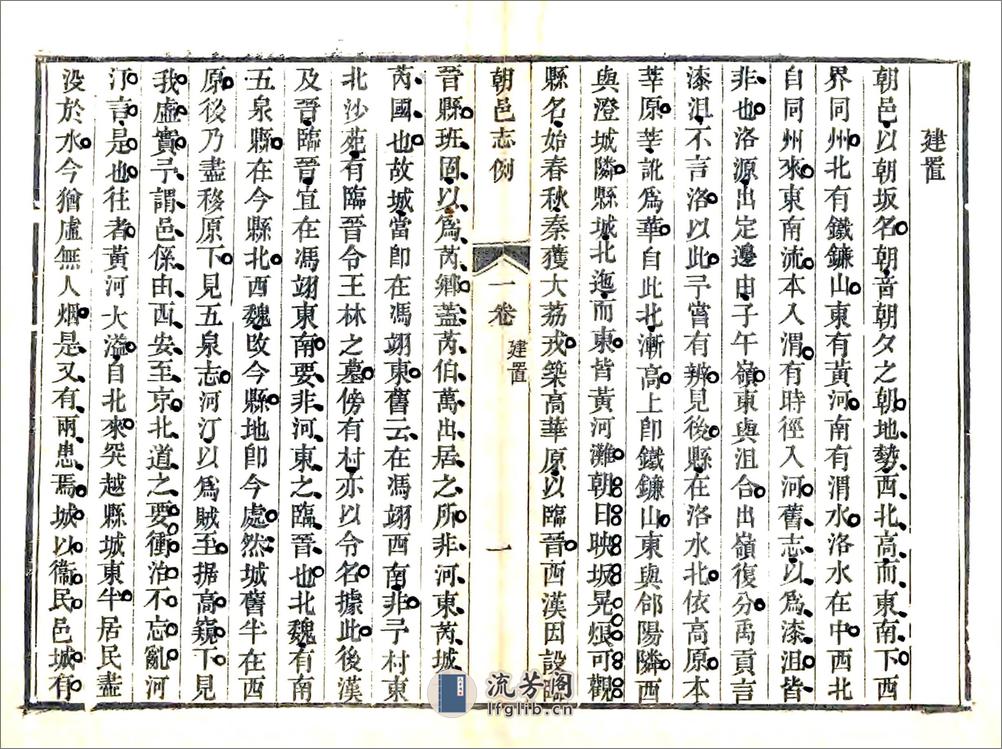 建置
朝邑以朝坂名朝音朝夕之朝地勢西北高而東南下西
界同州北有鐵鐮山東有黃河南有渭水洛水在中西北
自同州來東南流本入渭有時徑入河舊志以為漆沮皆
非也洛源出定邊由子午嶺東與沮合出嶺復分禹貢言
漆沮不言洛以此予嘗有辨見後縣在洛水北依高原本
莘原莘訛爲華自此北漸高上卽鐵鐮山東與郃陽隣西
與澄城隣縣城北迤而東皆黃河灘朝日映坂晃烺可觀
縣名始春秋秦獲大荔戎築高華原以臨晉西漢因設臨
朝邑志例
一卷
建置
一
晉縣班固以爲芮鄉蓋芮伯萬出居之所非河東芮城
芮國也故城當卽在馮翊東舊云在馮翊西南非予村東
北沙苑有臨晉令王林之墓傍有村亦以令名據此後漢
及晉臨晉宜在馮翊東南要非河東之臨晉也北魏有南
五泉縣在今縣北西魏攺今縣地卽今處然城舊半在西
原後乃盡移原下見五泉志河汀以爲賊至据高窺下見
我虛實予謂邑係由西安至京北道之要衝治不忘亂河
汀言是也往者黃河大溢自北來突越縣城東半居民盡
没於水今猶虛無人烟是又有兩患焉城以衞民邑城有
流芳阁
lfglib.cn